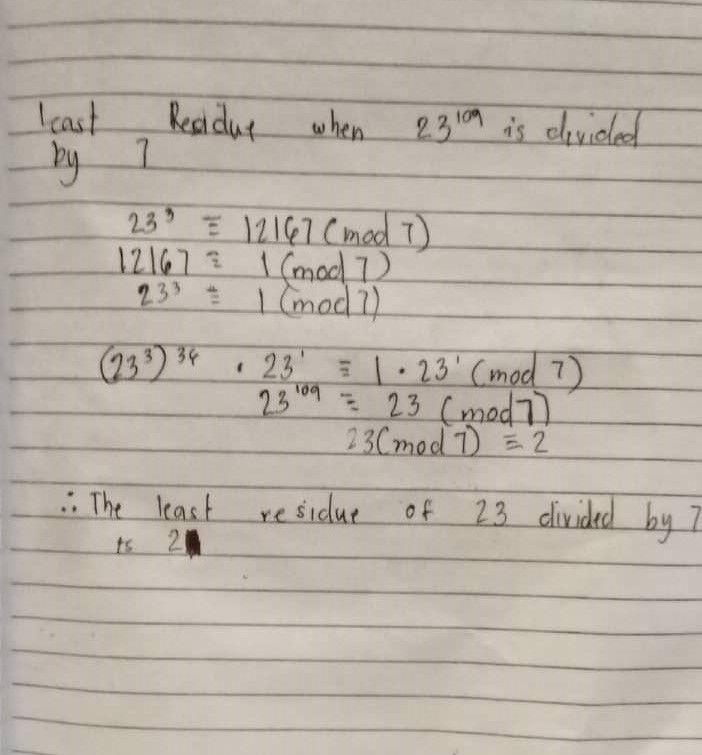 least Residue when 23¹⁰⁹ is divided
by 7
23³ ≡ 12167 (mod 7)
12167 ≡ 1 (mod 7)
23³ ≡ 1 (mod 7)
(23³)³⁶ · 23¹ ≡ 1 · 23¹ (mod 7)
23¹⁰⁹ ≡ 23 (mod 7)
23(mod 7) ≡ 2
∴ The least residue of 23 divided by 7
is 2